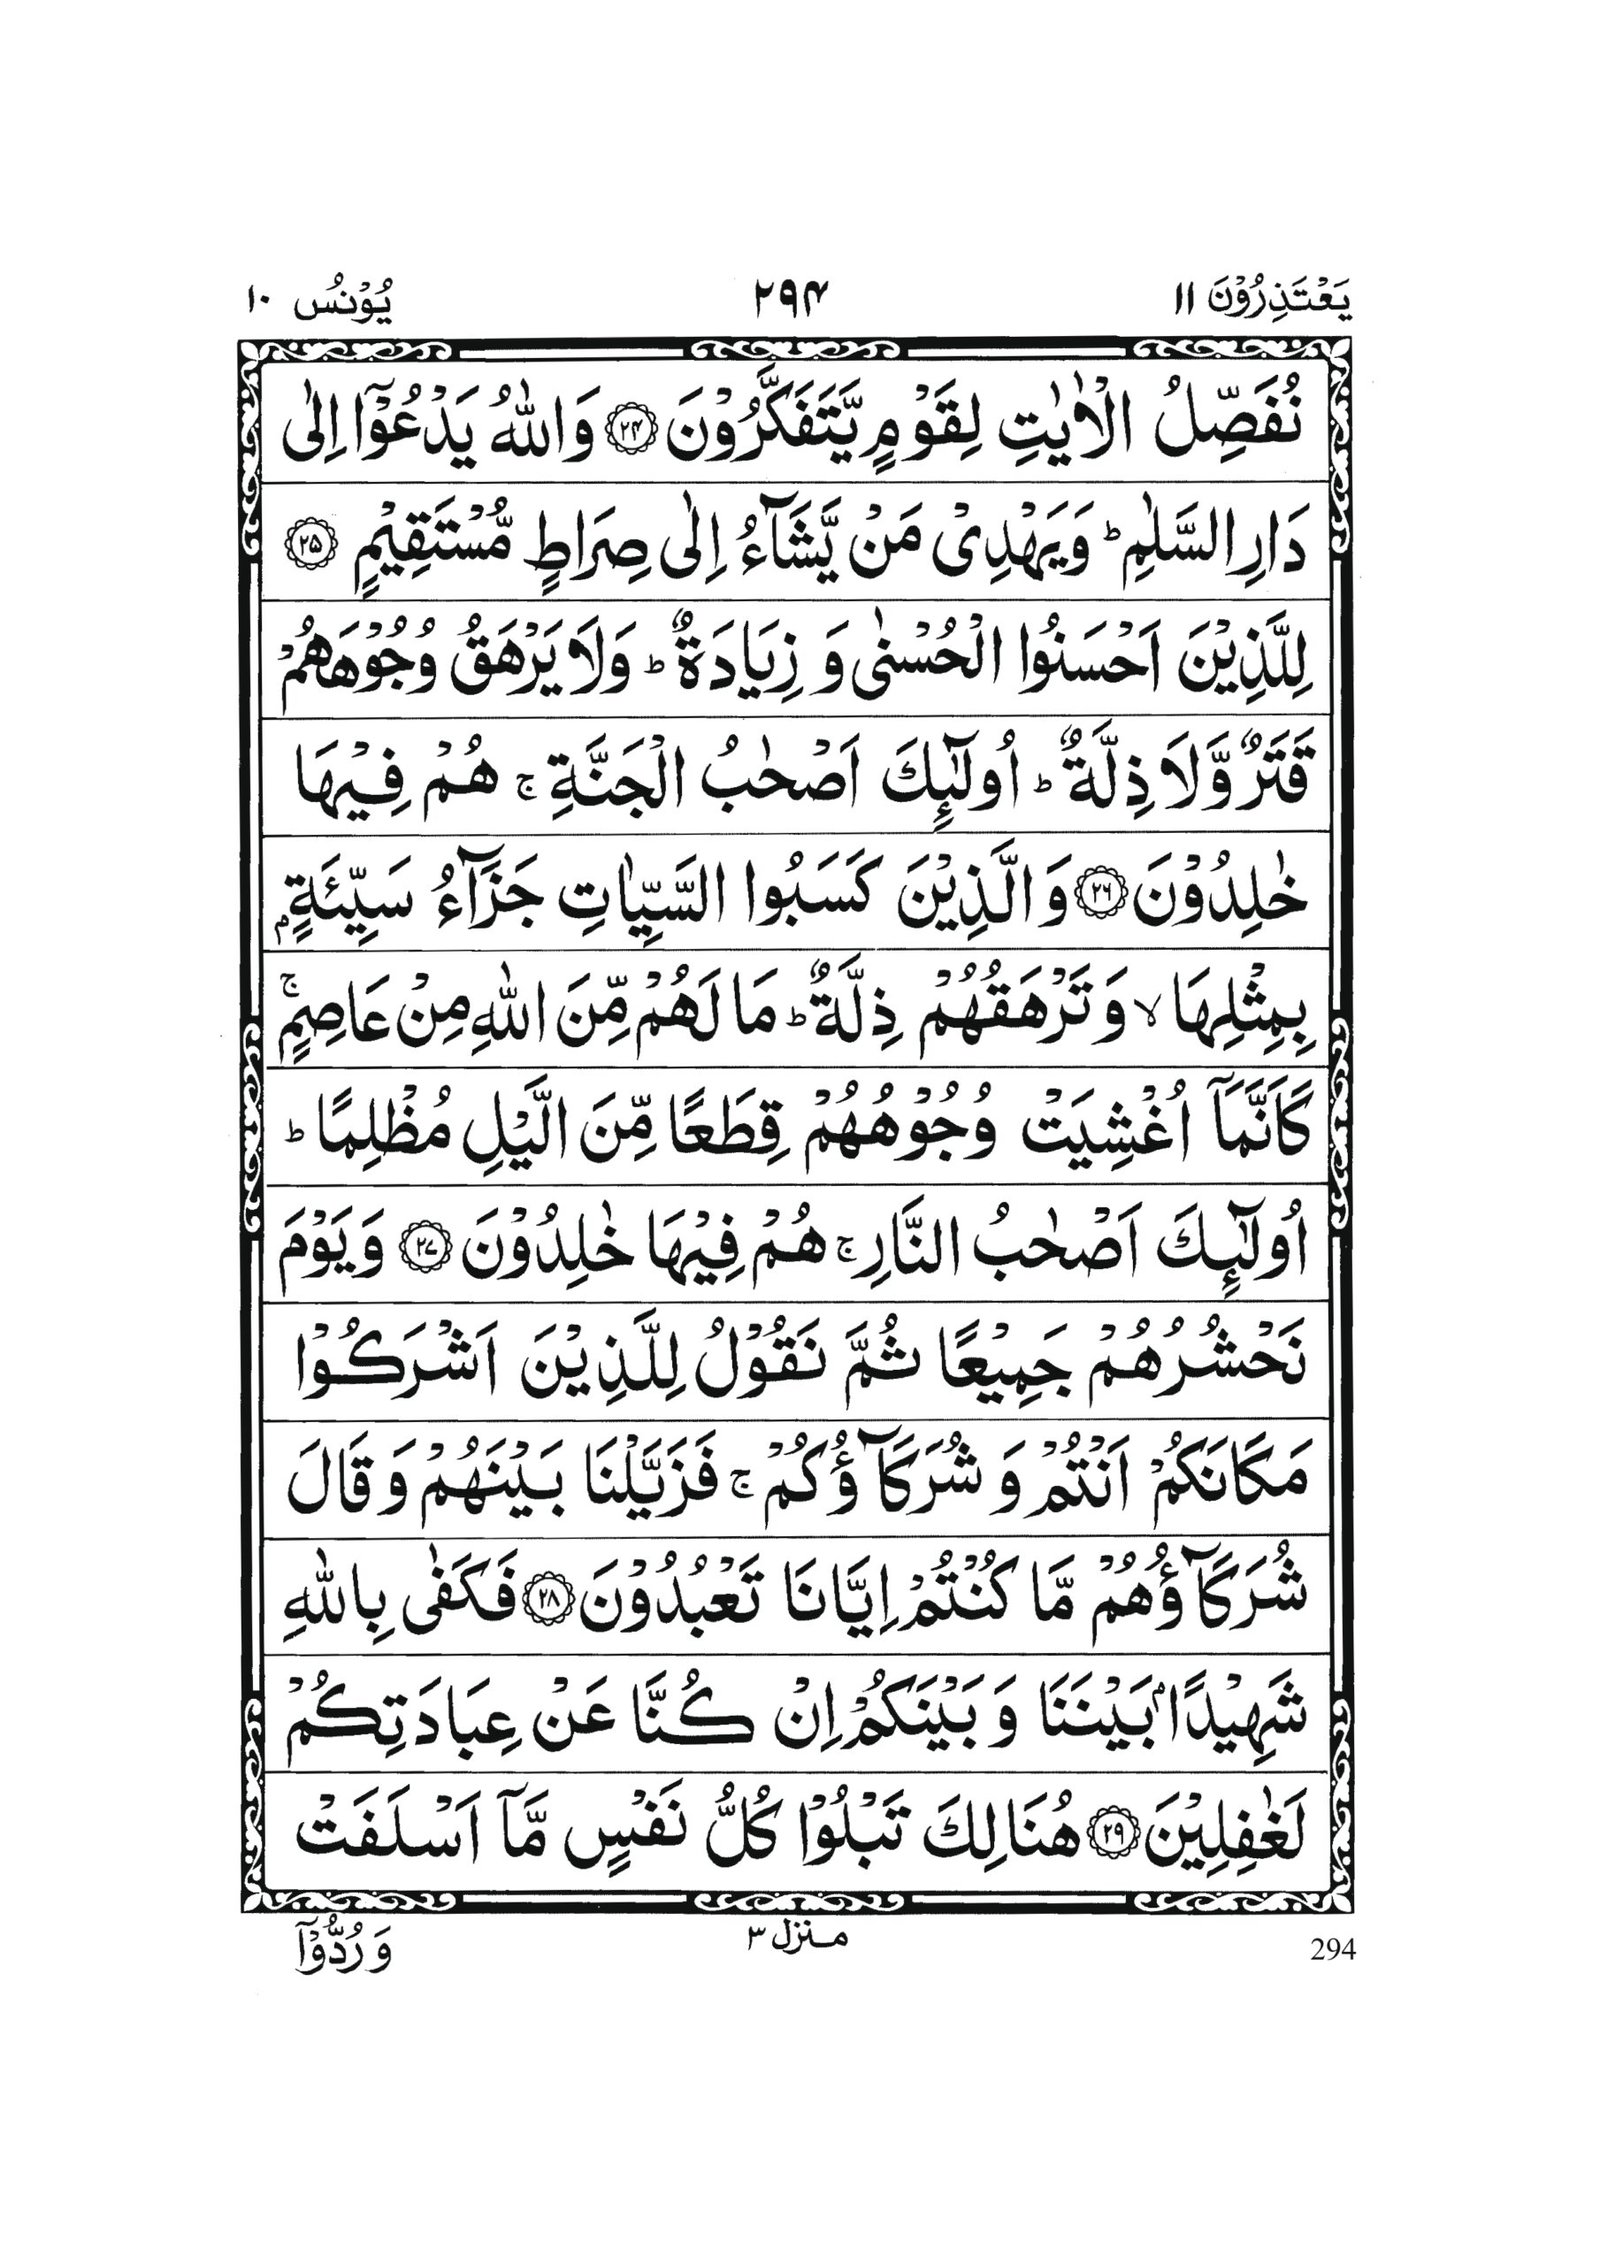 يَعْتَذِرُوْنَ ۱۱ ۲۹۴ يُوْنُسُ ۱۰
نُفَصِّلُ الْاٰيٰتِ لِقَوْمٍ يَّتَفَكَّرُوْنَ ﴿۲۴﴾ وَاللّٰهُ يَدْعُوْٓا اِلٰى
دَارِ السَّلٰمِ ؕ وَيَهْدِىْ مَنْ يَّشَآءُ اِلٰى صِرَاطٍ مُّسْتَقِيْمٍ ﴿۲۵﴾
لِلَّذِيْنَ اَحْسَنُوا الْحُسْنٰى وَ زِيَادَةٌ ؕ وَلَا يَرْهَقُ وُجُوْهَهُمْ
قَتَرٌ وَّلَا ذِلَّةٌ ؕ اُولٰٓئِكَ اَصْحٰبُ الْجَنَّةِ ۚ هُمْ فِيْهَا
خٰلِدُوْنَ ﴿۲۶﴾ وَالَّذِيْنَ كَسَبُوا السَّيِّاٰتِ جَزَآءُ سَيِّئَةٍۭ
بِمِثْلِهَا ۙ وَ تَرْهَقُهُمْ ذِلَّةٌ ؕ مَا لَهُمْ مِّنَ اللّٰهِ مِنْ عَاصِمٍ ۚ
كَاَنَّمَآ اُغْشِيَتْ وُجُوْهُهُمْ قِطَعًا مِّنَ الَّيْلِ مُظْلِمًا ؕ
اُولٰٓئِكَ اَصْحٰبُ النَّارِ ۚ هُمْ فِيْهَا خٰلِدُوْنَ ﴿۲۷﴾ وَيَوْمَ
نَحْشُرُهُمْ جَمِيْعًا ثُمَّ نَقُوْلُ لِلَّذِيْنَ اَشْرَكُوْا
مَكَانَكُمْ اَنْتُمْ وَ شُرَكَآؤُكُمْ ۚ فَزَيَّلْنَا بَيْنَهُمْ وَقَالَ
شُرَكَآؤُهُمْ مَّا كُنْتُمْ اِيَّانَا تَعْبُدُوْنَ ﴿۲۸﴾ فَكَفٰى بِاللّٰهِ
شَهِيْدًۢا بَيْنَنَا وَ بَيْنَكُمْ اِنْ كُنَّا عَنْ عِبَادَتِكُمْ
لَغٰفِلِيْنَ ﴿۲۹﴾ هُنَالِكَ تَبْلُوْا كُلُّ نَفْسٍ مَّآ اَسْلَفَتْ
294 منزل ۳ وَ رُدُّوْٓا